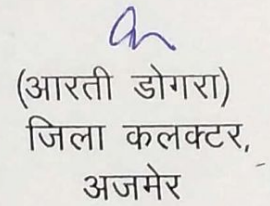 (आरती डोगरा)
जिला कलक्टर,
अजमेर